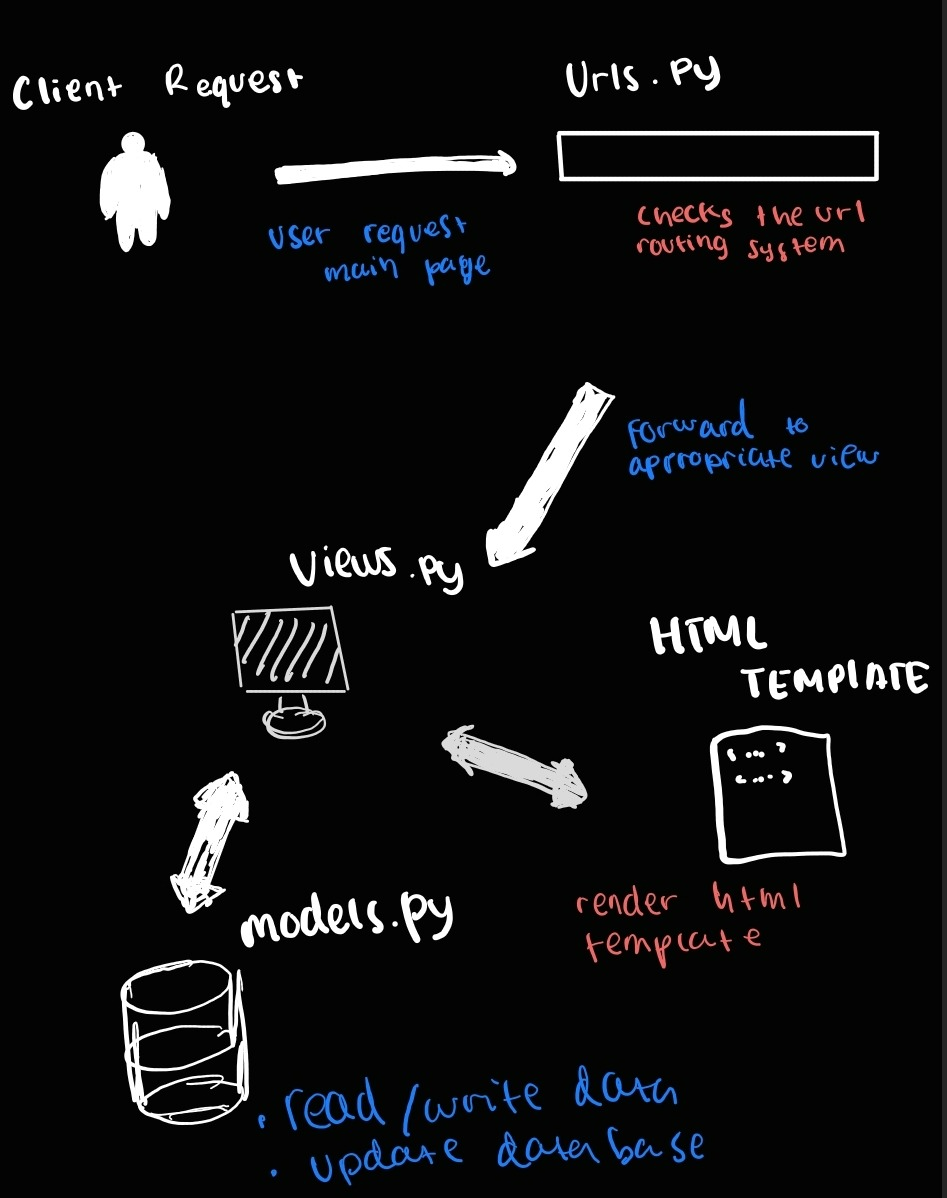 Client Request
Urls.py
user request
main page
checks the url
routing system
Forward to
aprropriate view
Views.py
HTML
TEMPLATE
< ... >
< ... >
models.py
render html
template
• read/write data
• update database